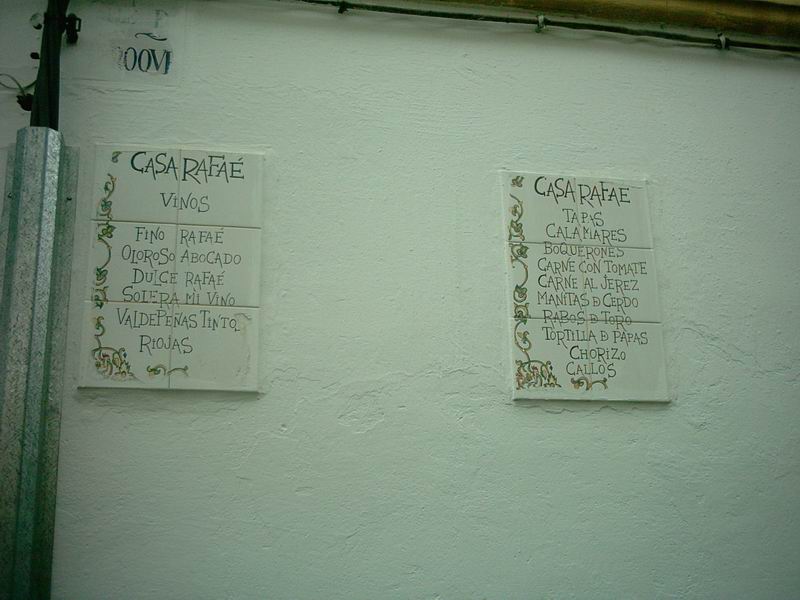 CASA RAFAÉ
VINOS
FINO RAFAÉ
OLOROSO ABOCADO
DULCE RAFAÉ
SOLERA MI VINO
VALDEPEÑAS TINTO
RIOJAS
CASA RAFAE
TAPAS
CALAMARES
BOQUERONES
CARNE CON TOMATE
CARNE AL JEREZ
MANITAS D CERDO
RABOS DE TORO
TORTILLA D PAPAS
CHORIZO
CALLOS